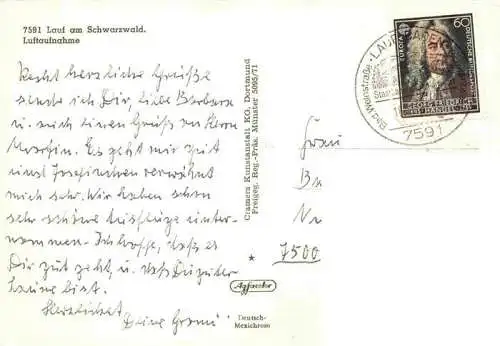 7591 Lauf am Schwarzwald.
Luftaufnahme
Recht herzliche Grüße
sende ich Dir, liebe Barbara
u. auch einen Gruß an Herrn
Es geht mir gut
und Josefinchen verwöhnt
mich sehr. Wir haben schon
sehr schöne Ausflüge unter-
nommen. Ich hoffe, daß es
Dir gut geht, u. daß Du guter
Laune bist.
Herzlichst
Deine Gromi
Cramers Kunstanstalt KG. Dortmund
Freigeg. Reg.-Präs. Münster 5095/71
Agfacolor
Deutsch-
Mexichrom
LAUF BADEN
Bad. Weinstraße
7591
60
EUROPA
DEUTSCHE BUNDESPOST
GEORG FRIEDRICH
HAENDEL
Frau
7500